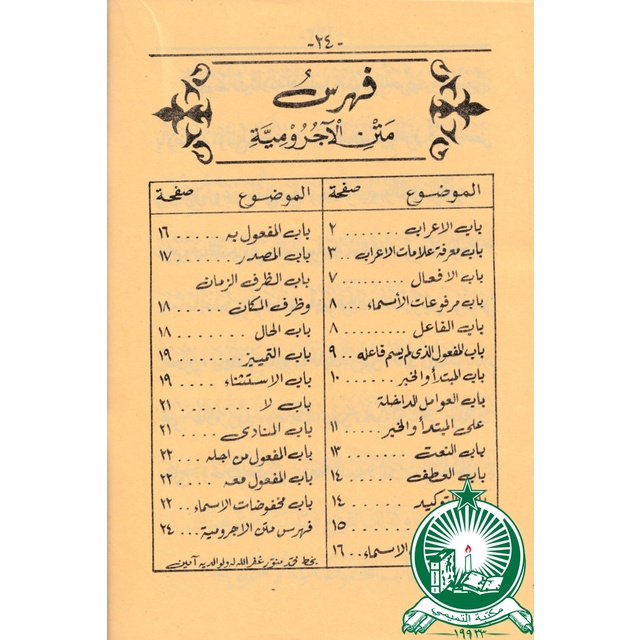 -٢٤-
فهرسُ
مَتْنِ الْآجُرُوْمِيَّةِ
الموضوع صفحة
باب الاعراب ........ ٢
باب معرفة علامات الاعراب .. ٣
باب الافعال ........ ٧
باب مرفوعات الأسماء .. ٨
باب الفاعل ........ ٨
باب المفعول الذى لم يسم فاعله .. ٩
باب المبتدأ والخبر .... ١٠
باب العوامل الداخلة
على المبتدأ والخبر .... ١١
باب النعت ........ ١٣
باب العطف ..... ١٤
التوكيد ...... ١٤
١٥
الاسماء... ١٦
الموضوع صفحة
باب المفعول به ..... ١٦
باب المصدر ...... ١٧
باب الظرف الزمان
وظرف المكان ..... ١٨
باب الحال ....... ١٨
باب التمييز...... ١٩
باب الاستثناء .... ١٩
باب لا ........ ٢١
باب المنادى ..... ٢١
باب المفعول من اجله .. ٢٢
باب المفعول معه ... ٢٢
باب مخفوضات الاسماء .. ٢٢
فهرس متن الاجرومية... ٢٤
بخط محمد منور غفر الله له ولوالديه آمين
مكتبة التميمي
١٩٩٣٣